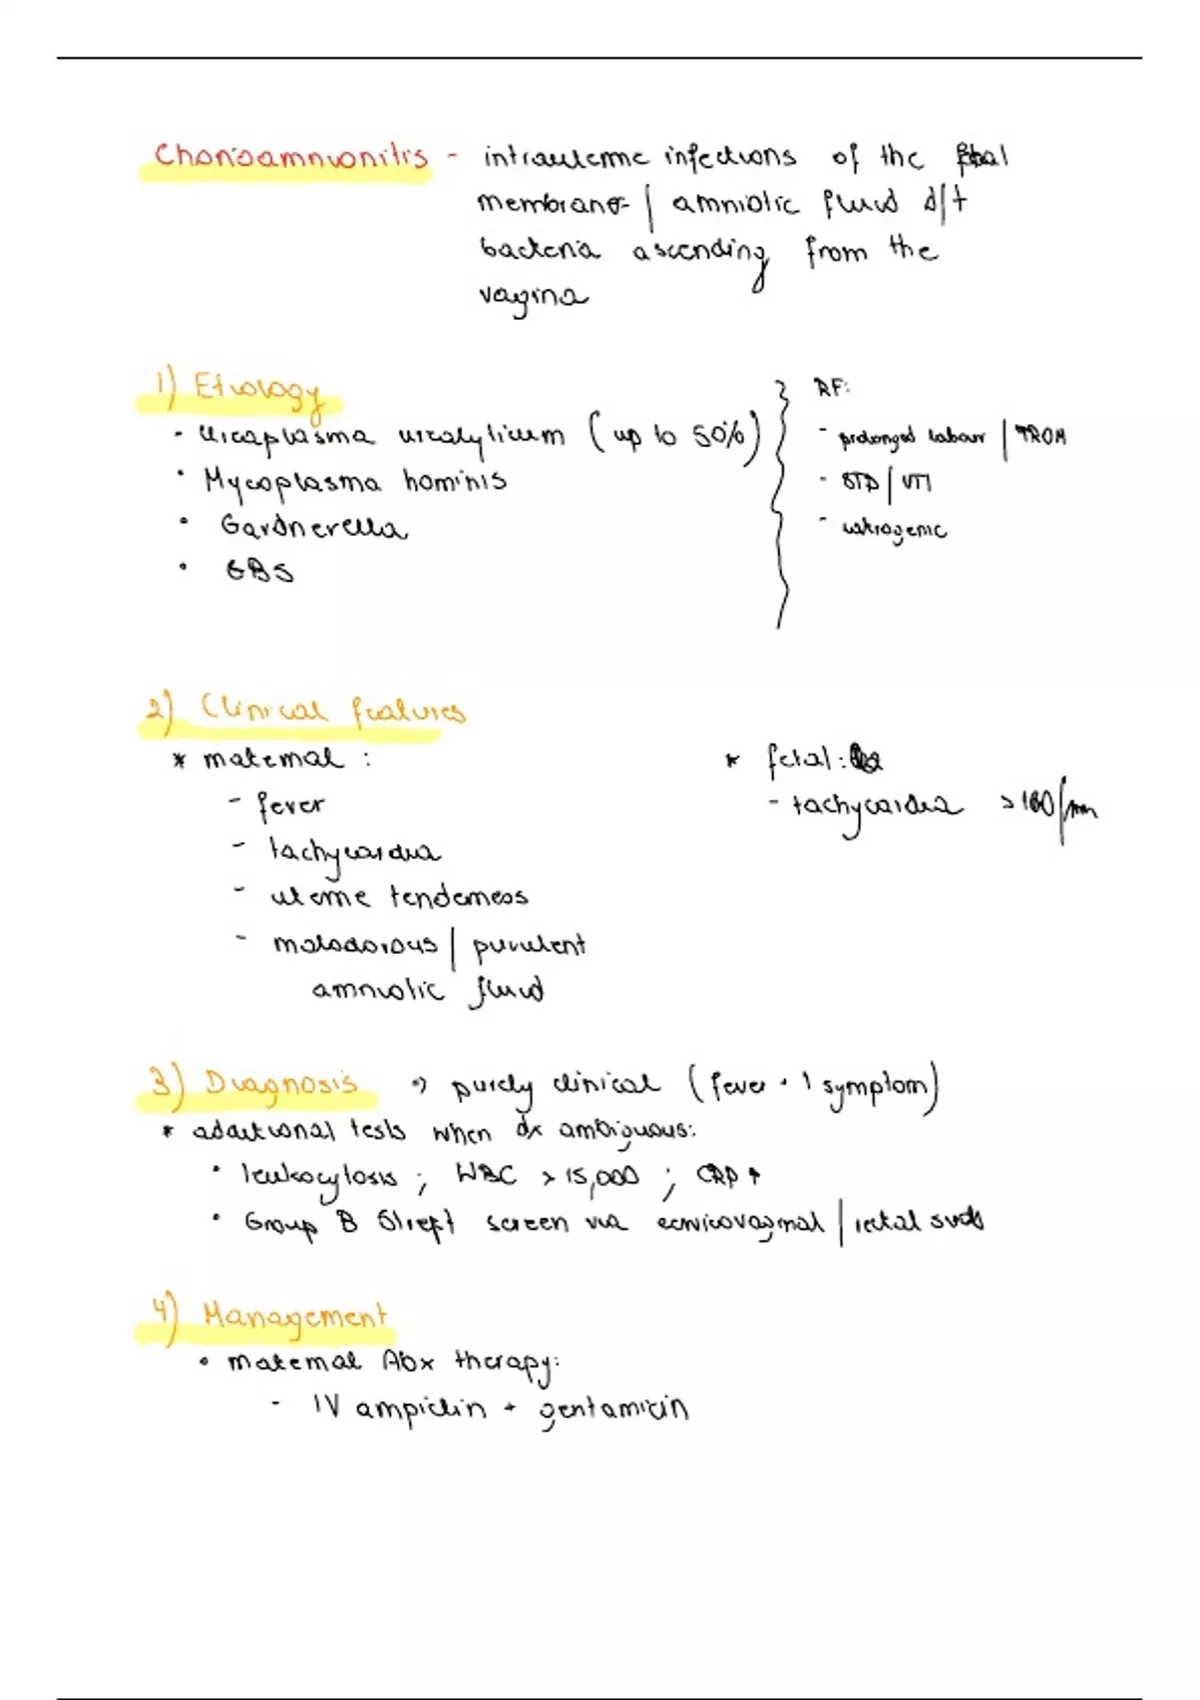 Chorioamnionitis - intrauterine infections of the fetal
membrane / amniotic fluid d/t
bacteria ascending from the
vagina
1) Etiology
- Ureaplasma urealyticum (up to 50%)
• Mycoplasma hominis
• Gardnerella
• GBS
RF:
- prolonged labour / PROM
- STD / UTI
- iatrogenic
2) Clinical features
* maternal :
- fever
- tachycardia
- uterine tenderness
- malodorous / purulent
amniotic fluid
* fetal :
- tachycardia > 160/min
3) Diagnosis → purely clinical (fever + 1 symptom)
* additional tests when dx ambiguous:
• leukocytosis ; WBC > 15,000 ; CRP ↑
• Group B Strept screen via cervicovaginal / rectal swab
4) Management
• maternal Abx therapy:
- IV ampicilin + gentamicin